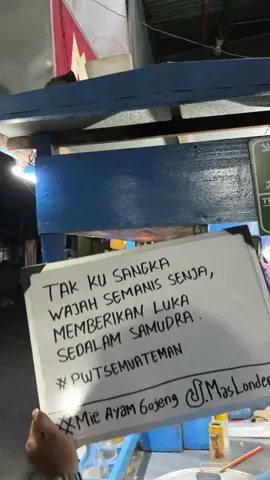 TAK KU SANGKA
WAJAH SEMANIS SENJA,
MEMBERIKAN LUKA
SEDALAM SAMUDRA.
#PWTSEMUATEMAN
#Mie Ayam Gojeng